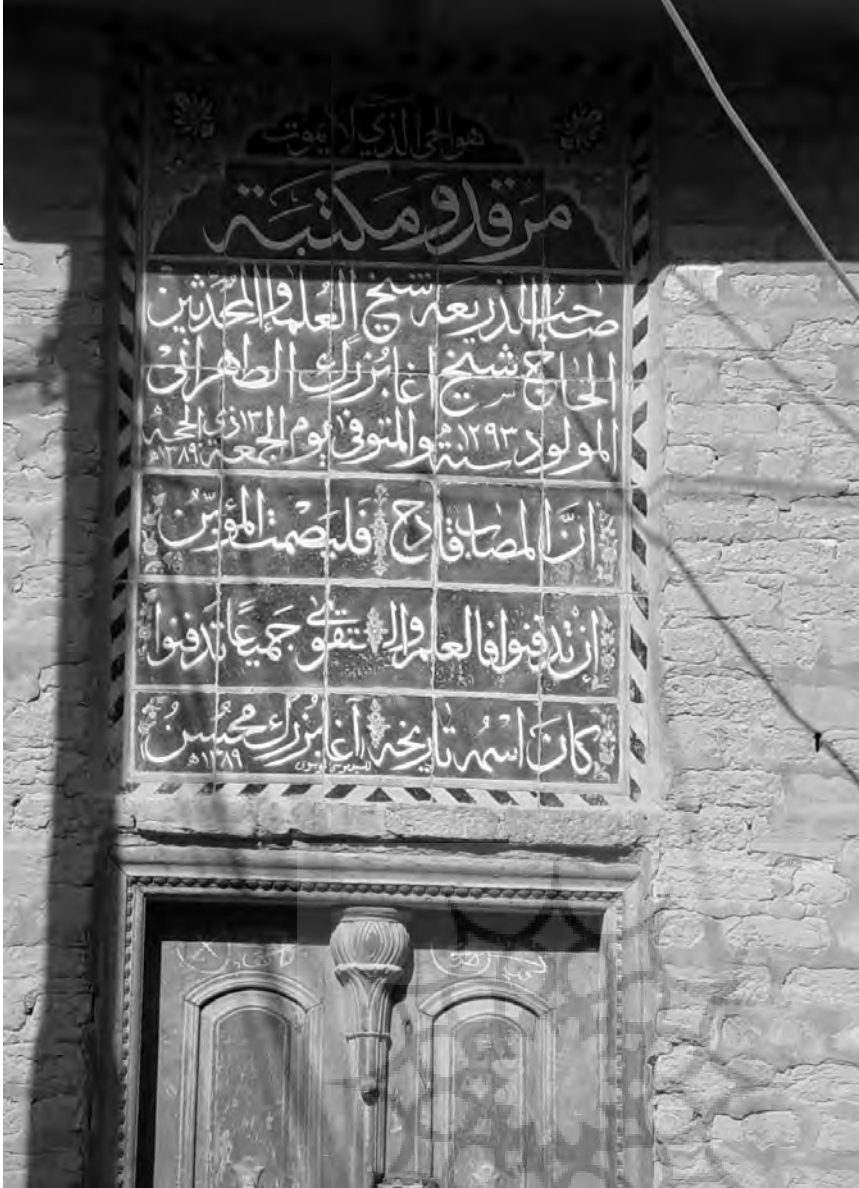 هو الحي الذي لا يموت
مرقد و مكتبة
صاحب الذريعه شيخ العلماء والمحدثين
الحاج شيخ اغا بزرك الطهراني
المولود سنة ۱۲۹۳ه والمتوفى يوم الجمعة ۱۳ ذي الحجه ۱۳۸۹ه
انّ المصاب قادح فليصمت المؤبّن
إن تدفنوا فالعلم والتقوى جميعًا تدفنوا
كان اسمه تاريخه آغا بزرك محسن
۱۳۸۹ه